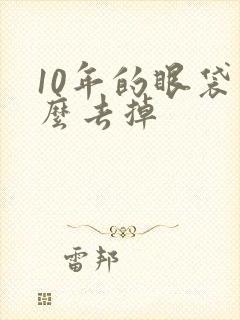 10年的眼袋
麼去掉
雷邦